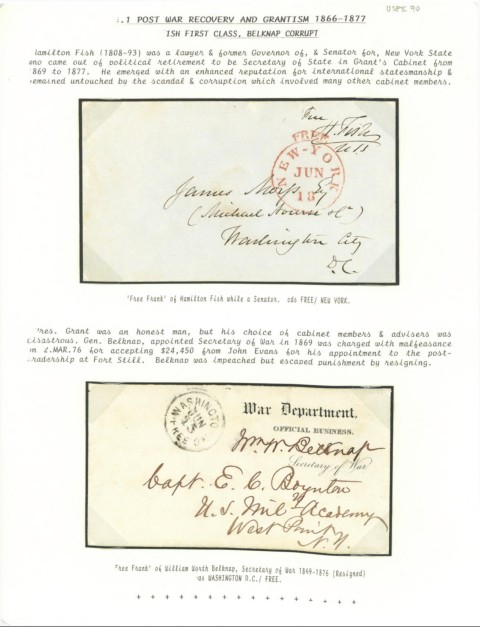 USPE 90
.1 POST WAR RECOVERY AND GRANTISM 1866-1877
ISH FIRST CLASS, BELKNAP CORRUPT
amilton Fish (1808-93) was a lawyer & former Governor of, & Senator for, New York State
who came out of political retirement to be Secretary of State in Grant's Cabinet from
869 to 1877. He emerged with an enhanced reputation for international statesmanship &
emained untouched by the scandal & corruption which involved many other cabinet members.
Free
H. Fish
USS
FREE
NEW-YORK
JUN
18
James
(Michael
Washington City
D.C.
'Free Frank' of Hamilton Fish while a Senator. cds FREE/ NEW YORK.
res. Grant was an honest man, but his choice of cabinet members & advisers was
isastrous. Gen. Belknap, appointed Secretary of War in 1869 was charged with malfeasance
n 2.MAR.76 for accepting $24,450 from John Evans for his appointment to the post-
radership at Fort Still. Belknap was impeached but escaped punishment by resigning.
WASHINGTO
JUN
FREE
War Department,
OFFICIAL BUSINESS.
Wm W. Belknap
Secretary of War
Capt. E. C. Boynton
U.S. Mil'y Academy
West Point
N.Y.
Free Frank' of William Worth Belknap, Secretary of War 1849-1876 (Resigned)
WASHINGTON D.C./ FREE.
+ + + + + + + + + + + + + + + +